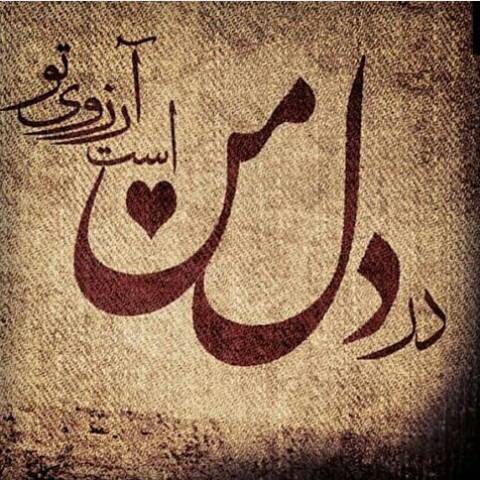 در دل من
است
آرزوی تو